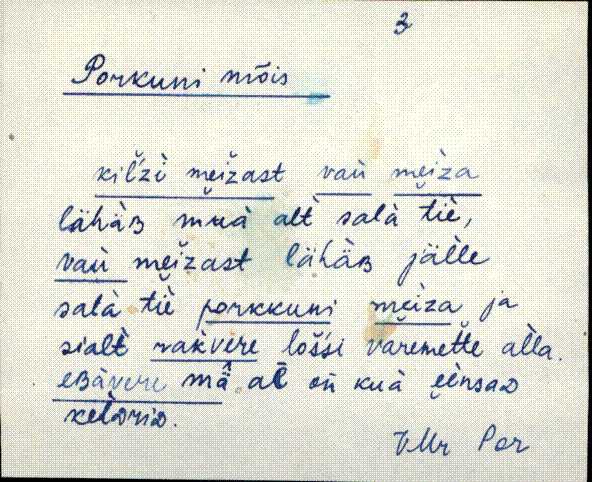 3
Porkuni mõis
kil̆'zì̬ mei̯žast vaù mei̯za
lähäʙ muà alt̀ salà tiè,
vaù mei̯žast lähäʙ jälle
salà tiè porkkuni mei̯za ja
sialt̀ rakvere lošši varemette alla.
eʙàvere mä̂ al on kuà ei̯nsaᴅ
kelᴅriᴅ.
VMr Por